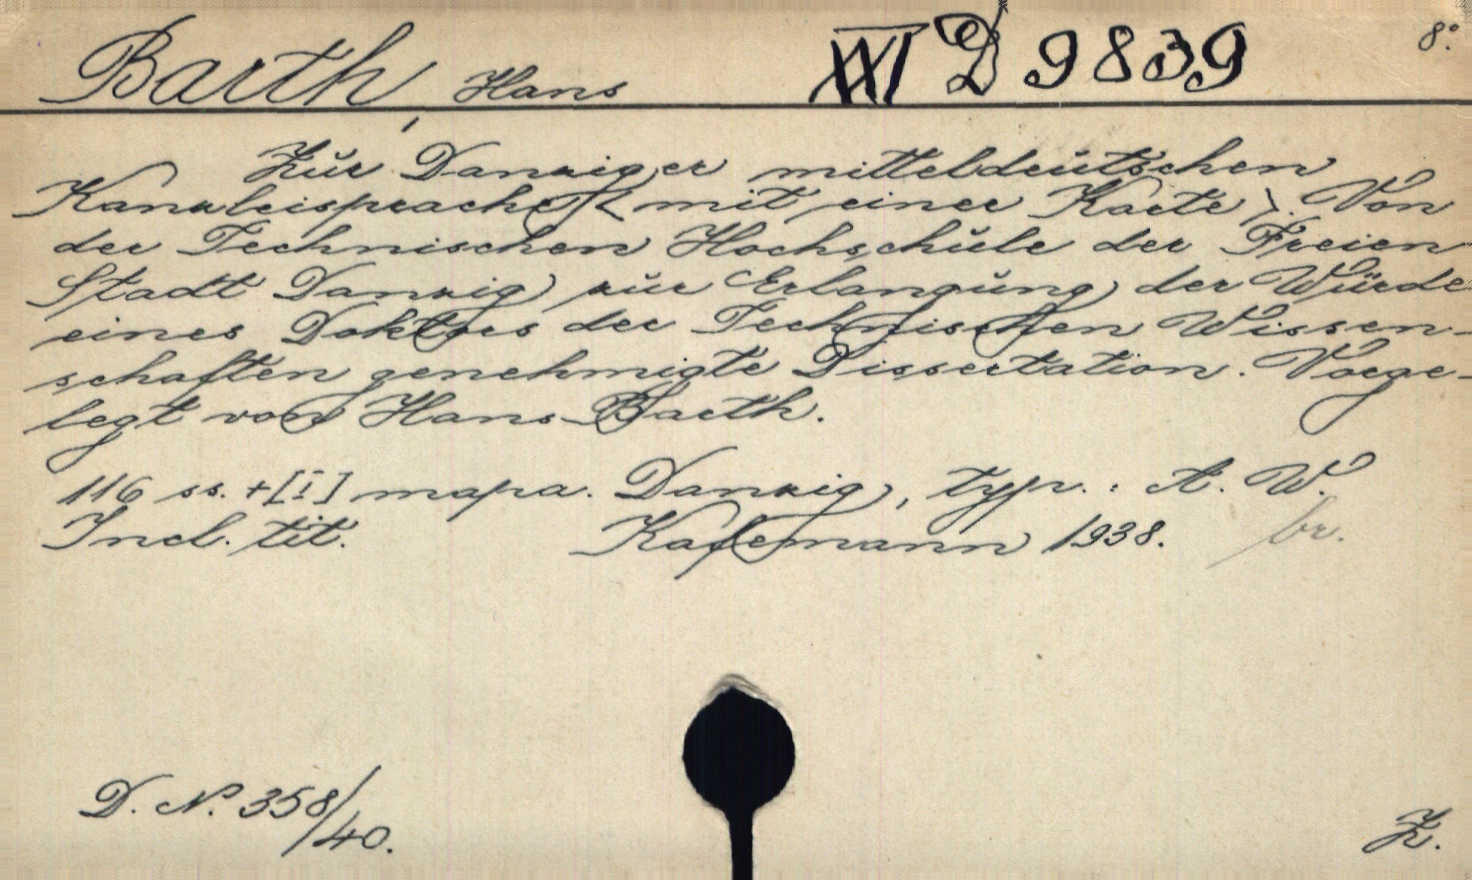 Barth, Hans XVI D 9839 8°.
Zur Danziger mitteldeutschen
Kanzleisprache <mit einer Karte>. Von
der Technischen Hochschule der Freien
Stadt Danzig zur Erlangung der Würde
eines Doktors der Technischen Wissen-
schaften genehmigte Dissertation. Vorge-
legt von Hans Barth.
116 ss. + [I] mapa. Danzig, typ.: A. W.
Incl. tit. Kafemann 1938. br.
D. N. 358/40.
Z.